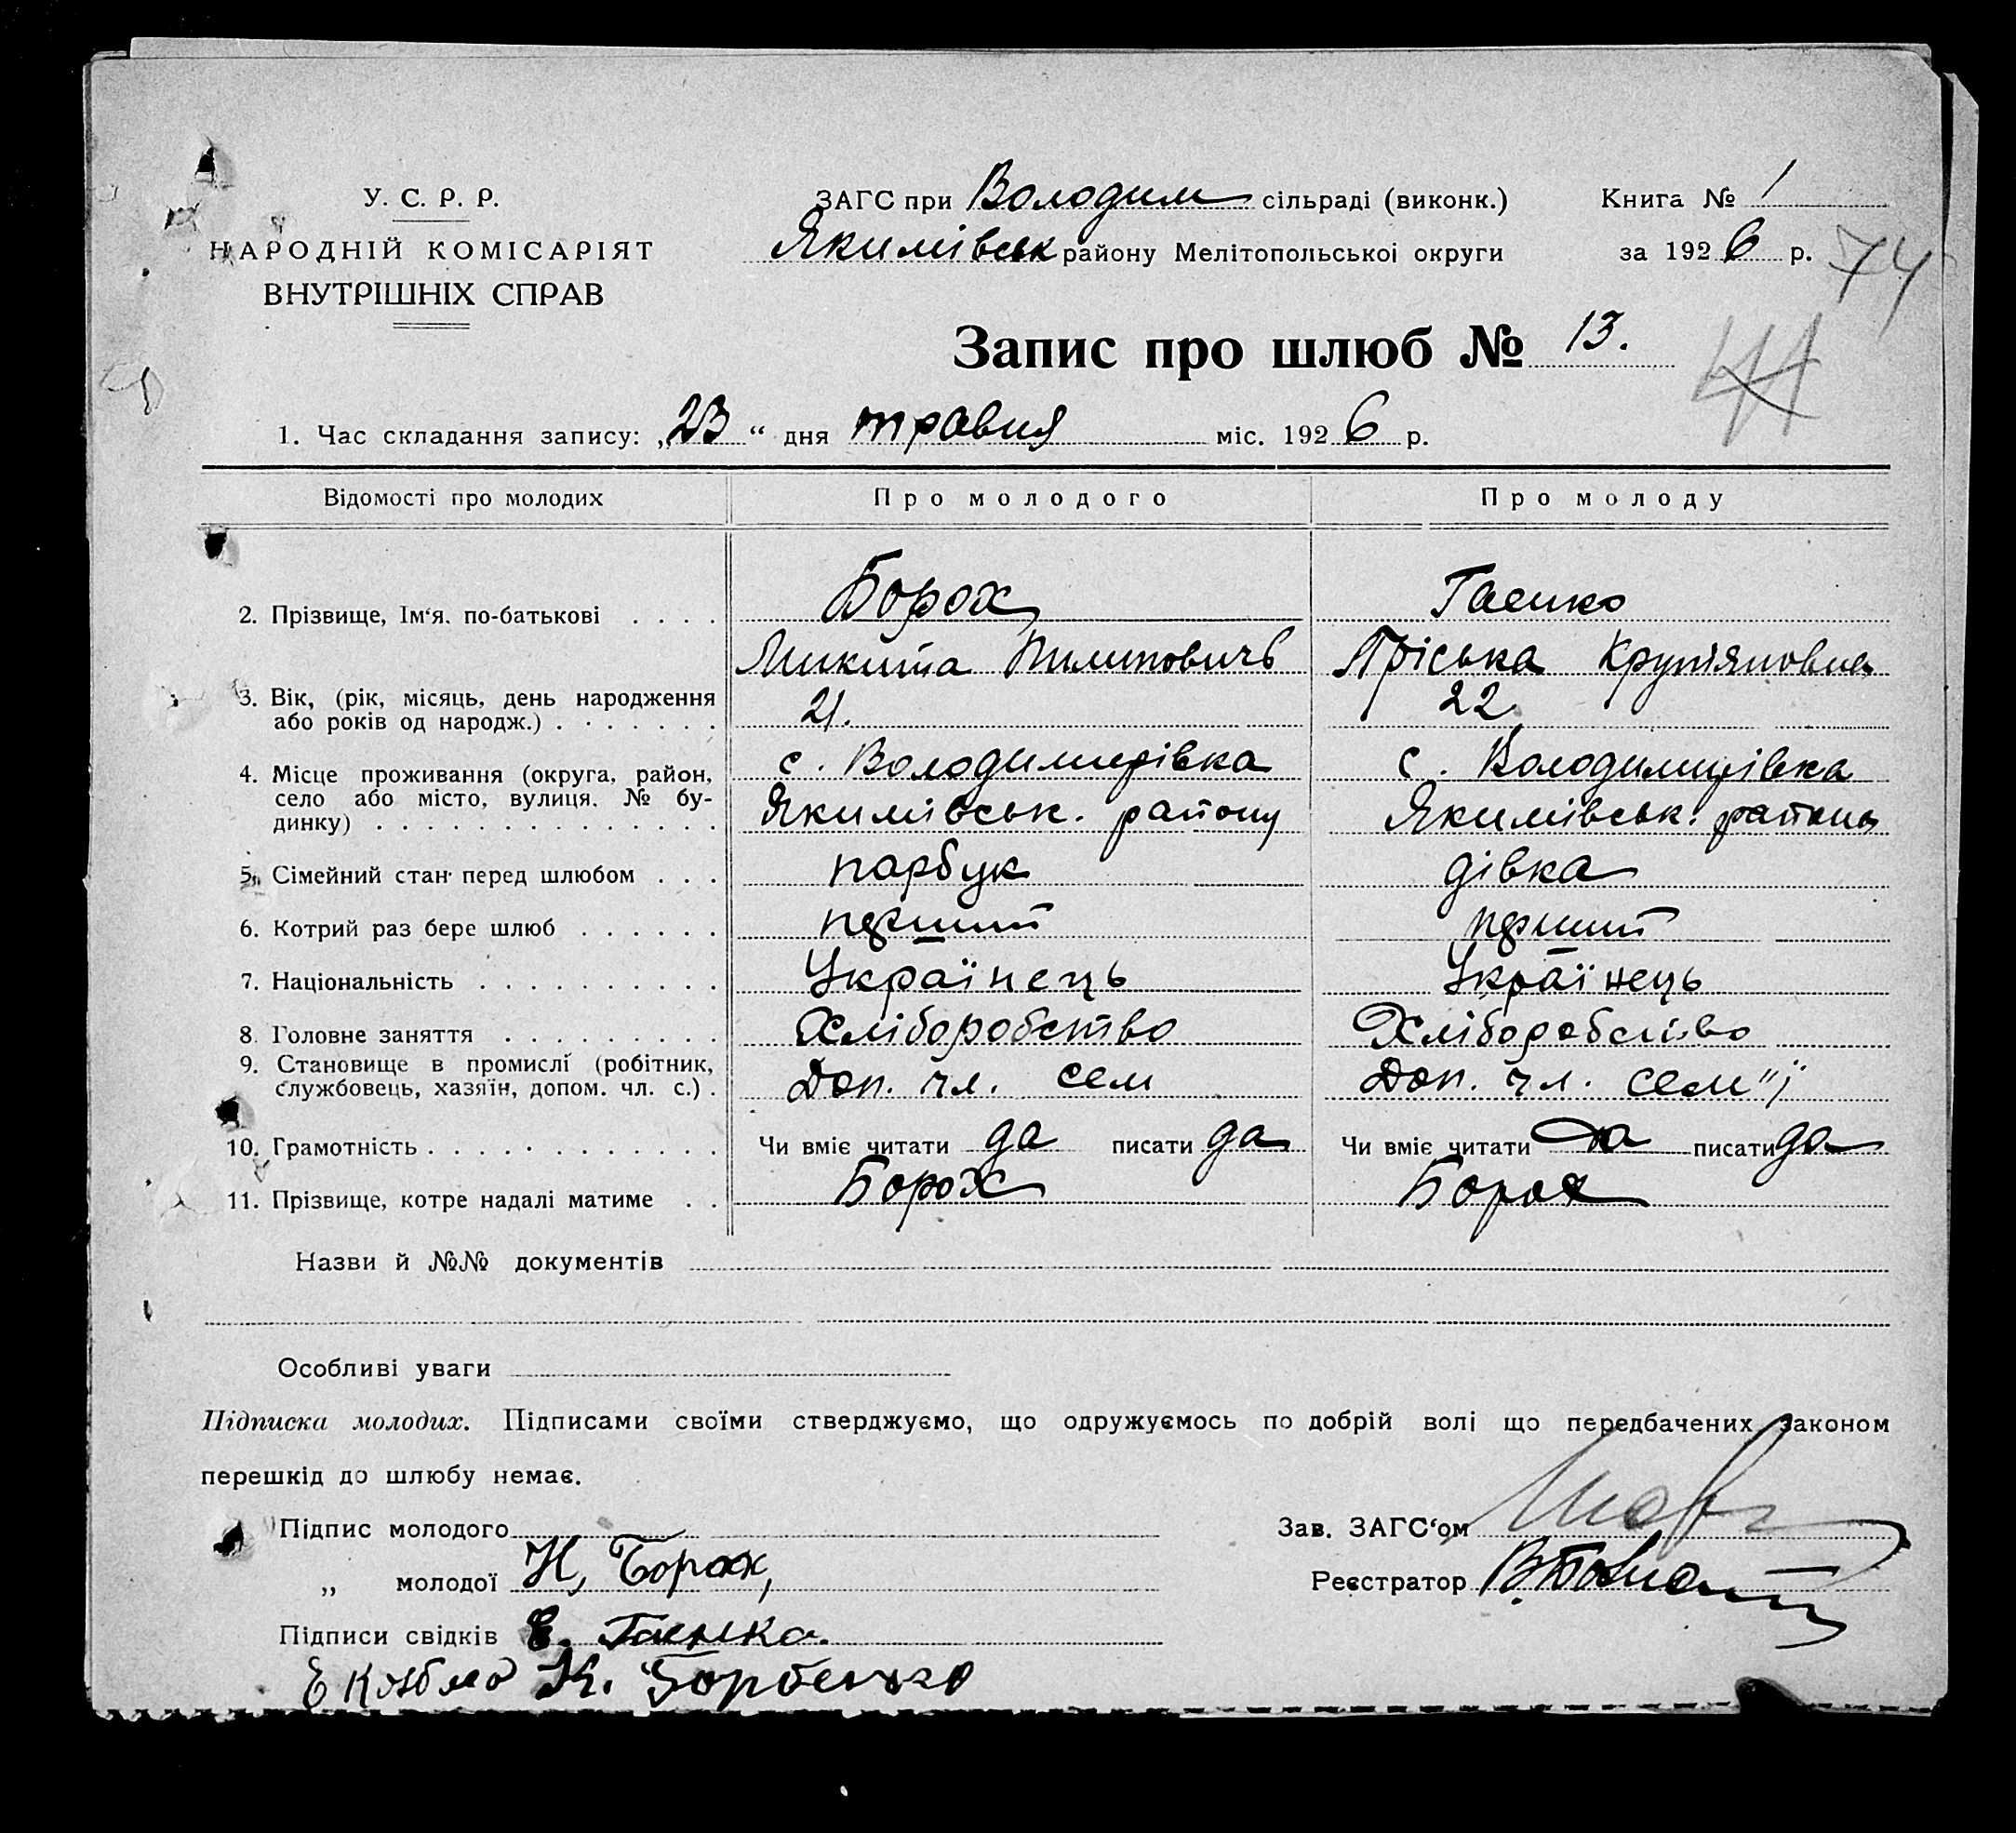 У. С. Р. Р.
НАРОДНІЙ КОМІСАРІЯТ
ВНУТРІШНІХ СПРАВ
ЗАГС при Володим сільраді (виконк.)
Якимівськ району Мелітопольської округи
Книга № 1
за 1926 р.
74
Запис про шлюб № 13.
44
1. Час складання запису: „23“ дня травня міс. 1926 р.
Відомості про молодих Про молодого Про молоду
Борох Гаенко
2. Прізвище, Ім‘я. по-батькові . . . .
Микита Пилиповичь Пріська
3. Вік, (рік, місяць, день народження
або років од народж.) . . . . . . . 21. 22.
с. Володимирівка с. Володимирівка
4. Місце проживання (округа, район,
село або місто, вулиця. № бу-
динку) . . . . . . . . . . . . . . Якимівськ. району Якимівськ. району
5. Сімейний стан перед шлюбом . . . парбук дівка
6. Котрий раз бере шлюб . . . . . . перший перший
7. Національність . . . . . . . . . . Українець Українець
8. Головне заняття . . . . . . . . . Хліборобство Хліборобство
9. Становище в промислі (робітник,
службовець, хазяїн, допом. чл. с.) . Доп. чл. сем Доп. чл. сем"ї
10. Грамотність . . . . . . . . . . . . Чи вміє читати да писати да Чи вміє читати да писати да
11. Прізвище, котре надалі матиме . . Борох Борох
Назви й №№ документів
Особливі уваги
Підписка молодих. Підписами своїми стверджуємо, що одружуємось по добрій волі що передбачених законом
перешкід до шлюбу немає.
Підпис молодого Зав. ЗАГС‘ом
„ молодої Н, Борох, Реєстратор
Підписи свідків Е. Гаенко.
К. Борбенко